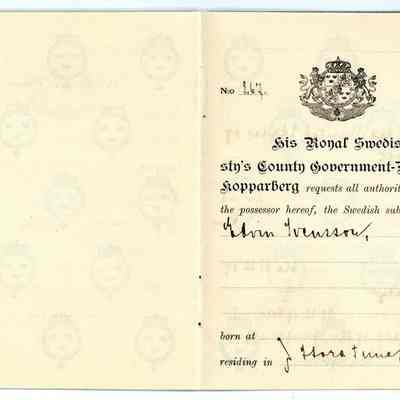 N:o 267.
His Royal Swedis
sty's County Government-
Kopparberg requests all authorit
the possessor hereof, the Swedish sub
Edvin Svensson,
born at
residing in Stora Tuna